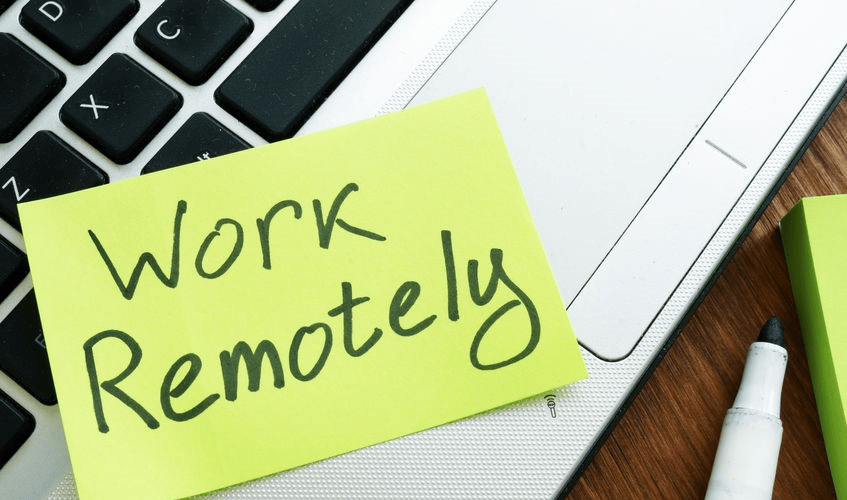 D
C
X
Alt
Z
Work
Remotely